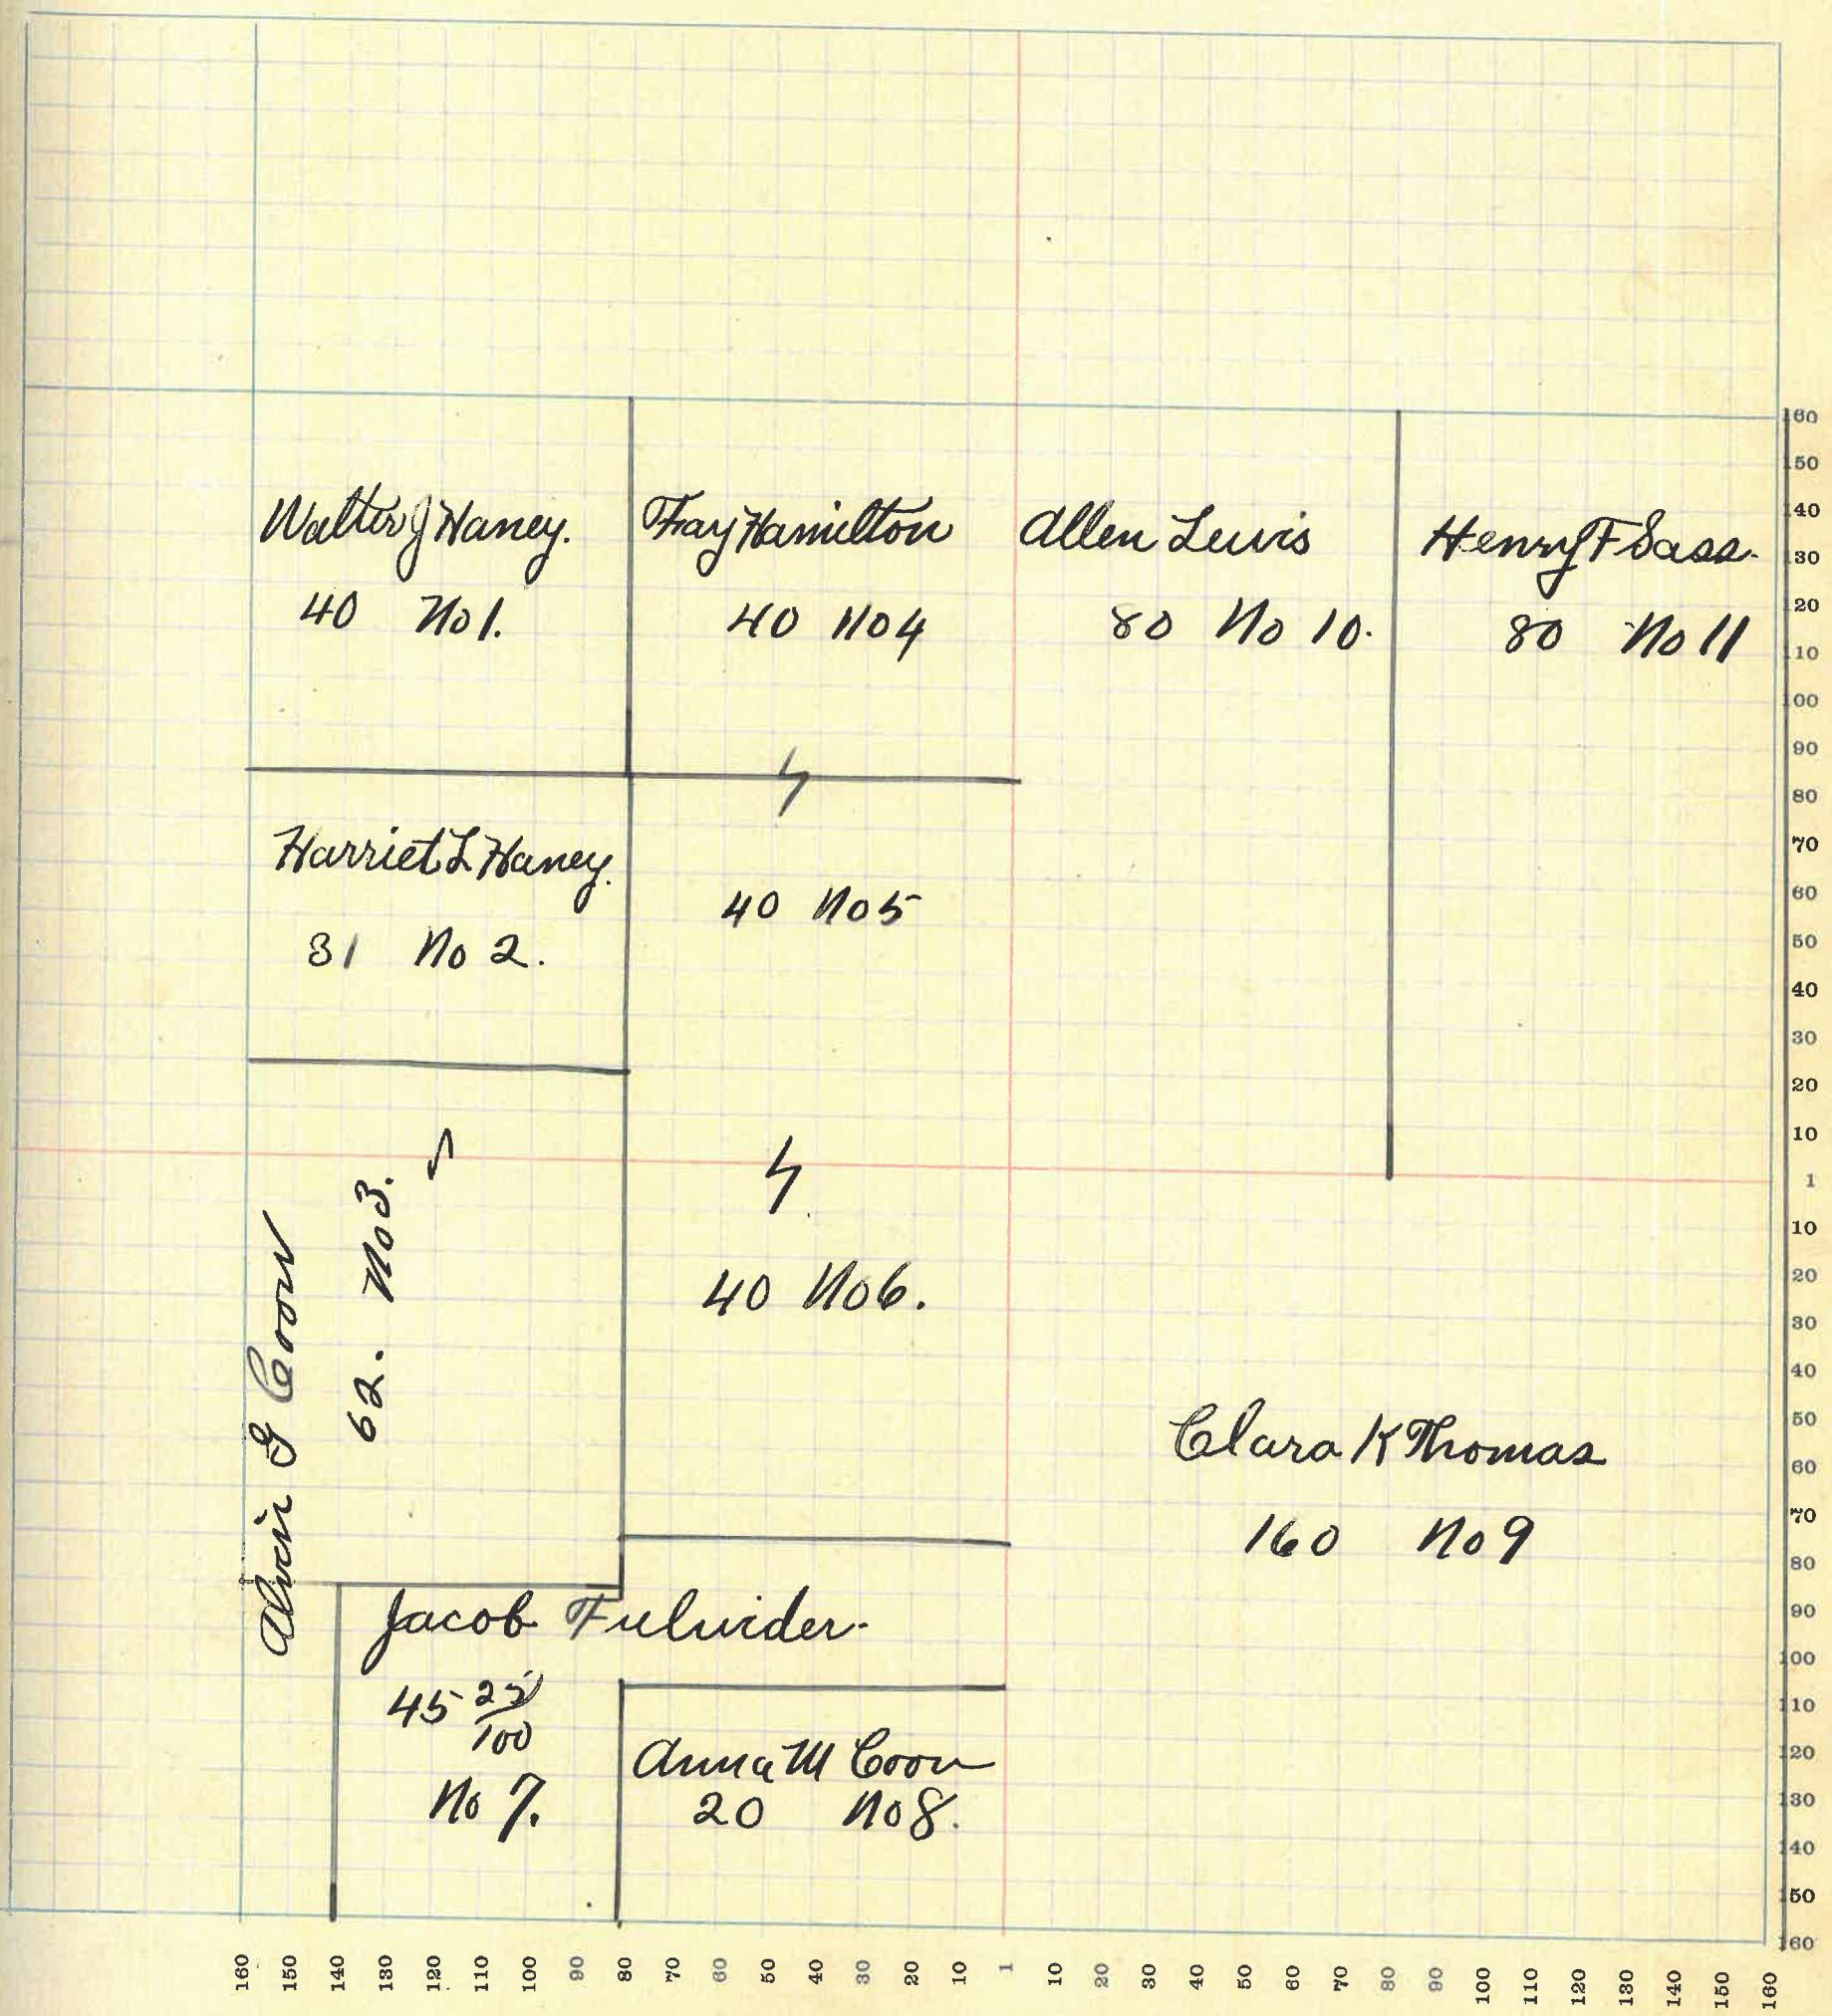 Walter J Haney.
40 No 1.
Fay Hamilton
40 No 4
Allen Lewis
80 No 10.
Henry F Sass.
80 No 11
Harriet L Haney.
31 No 2.
40 No 5
Alvin G Coon
62. No 3.
40 No 6.
Clara K Thomas
160 No 9
Jacob Fulwider.
45 25/100
No 7.
Anna M Coon
20 No 8.
160
150
140
130
120
110
100
90
80
70
60
50
40
30
20
10
1
10
20
30
40
50
60
70
80
90
100
110
120
130
140
150
160
160 150 140 130 120 110 100 90 80 70 60 50 40 30 20 10 1 10 20 30 40 50 60 70 80 90 100 110 120 130 140 150 160